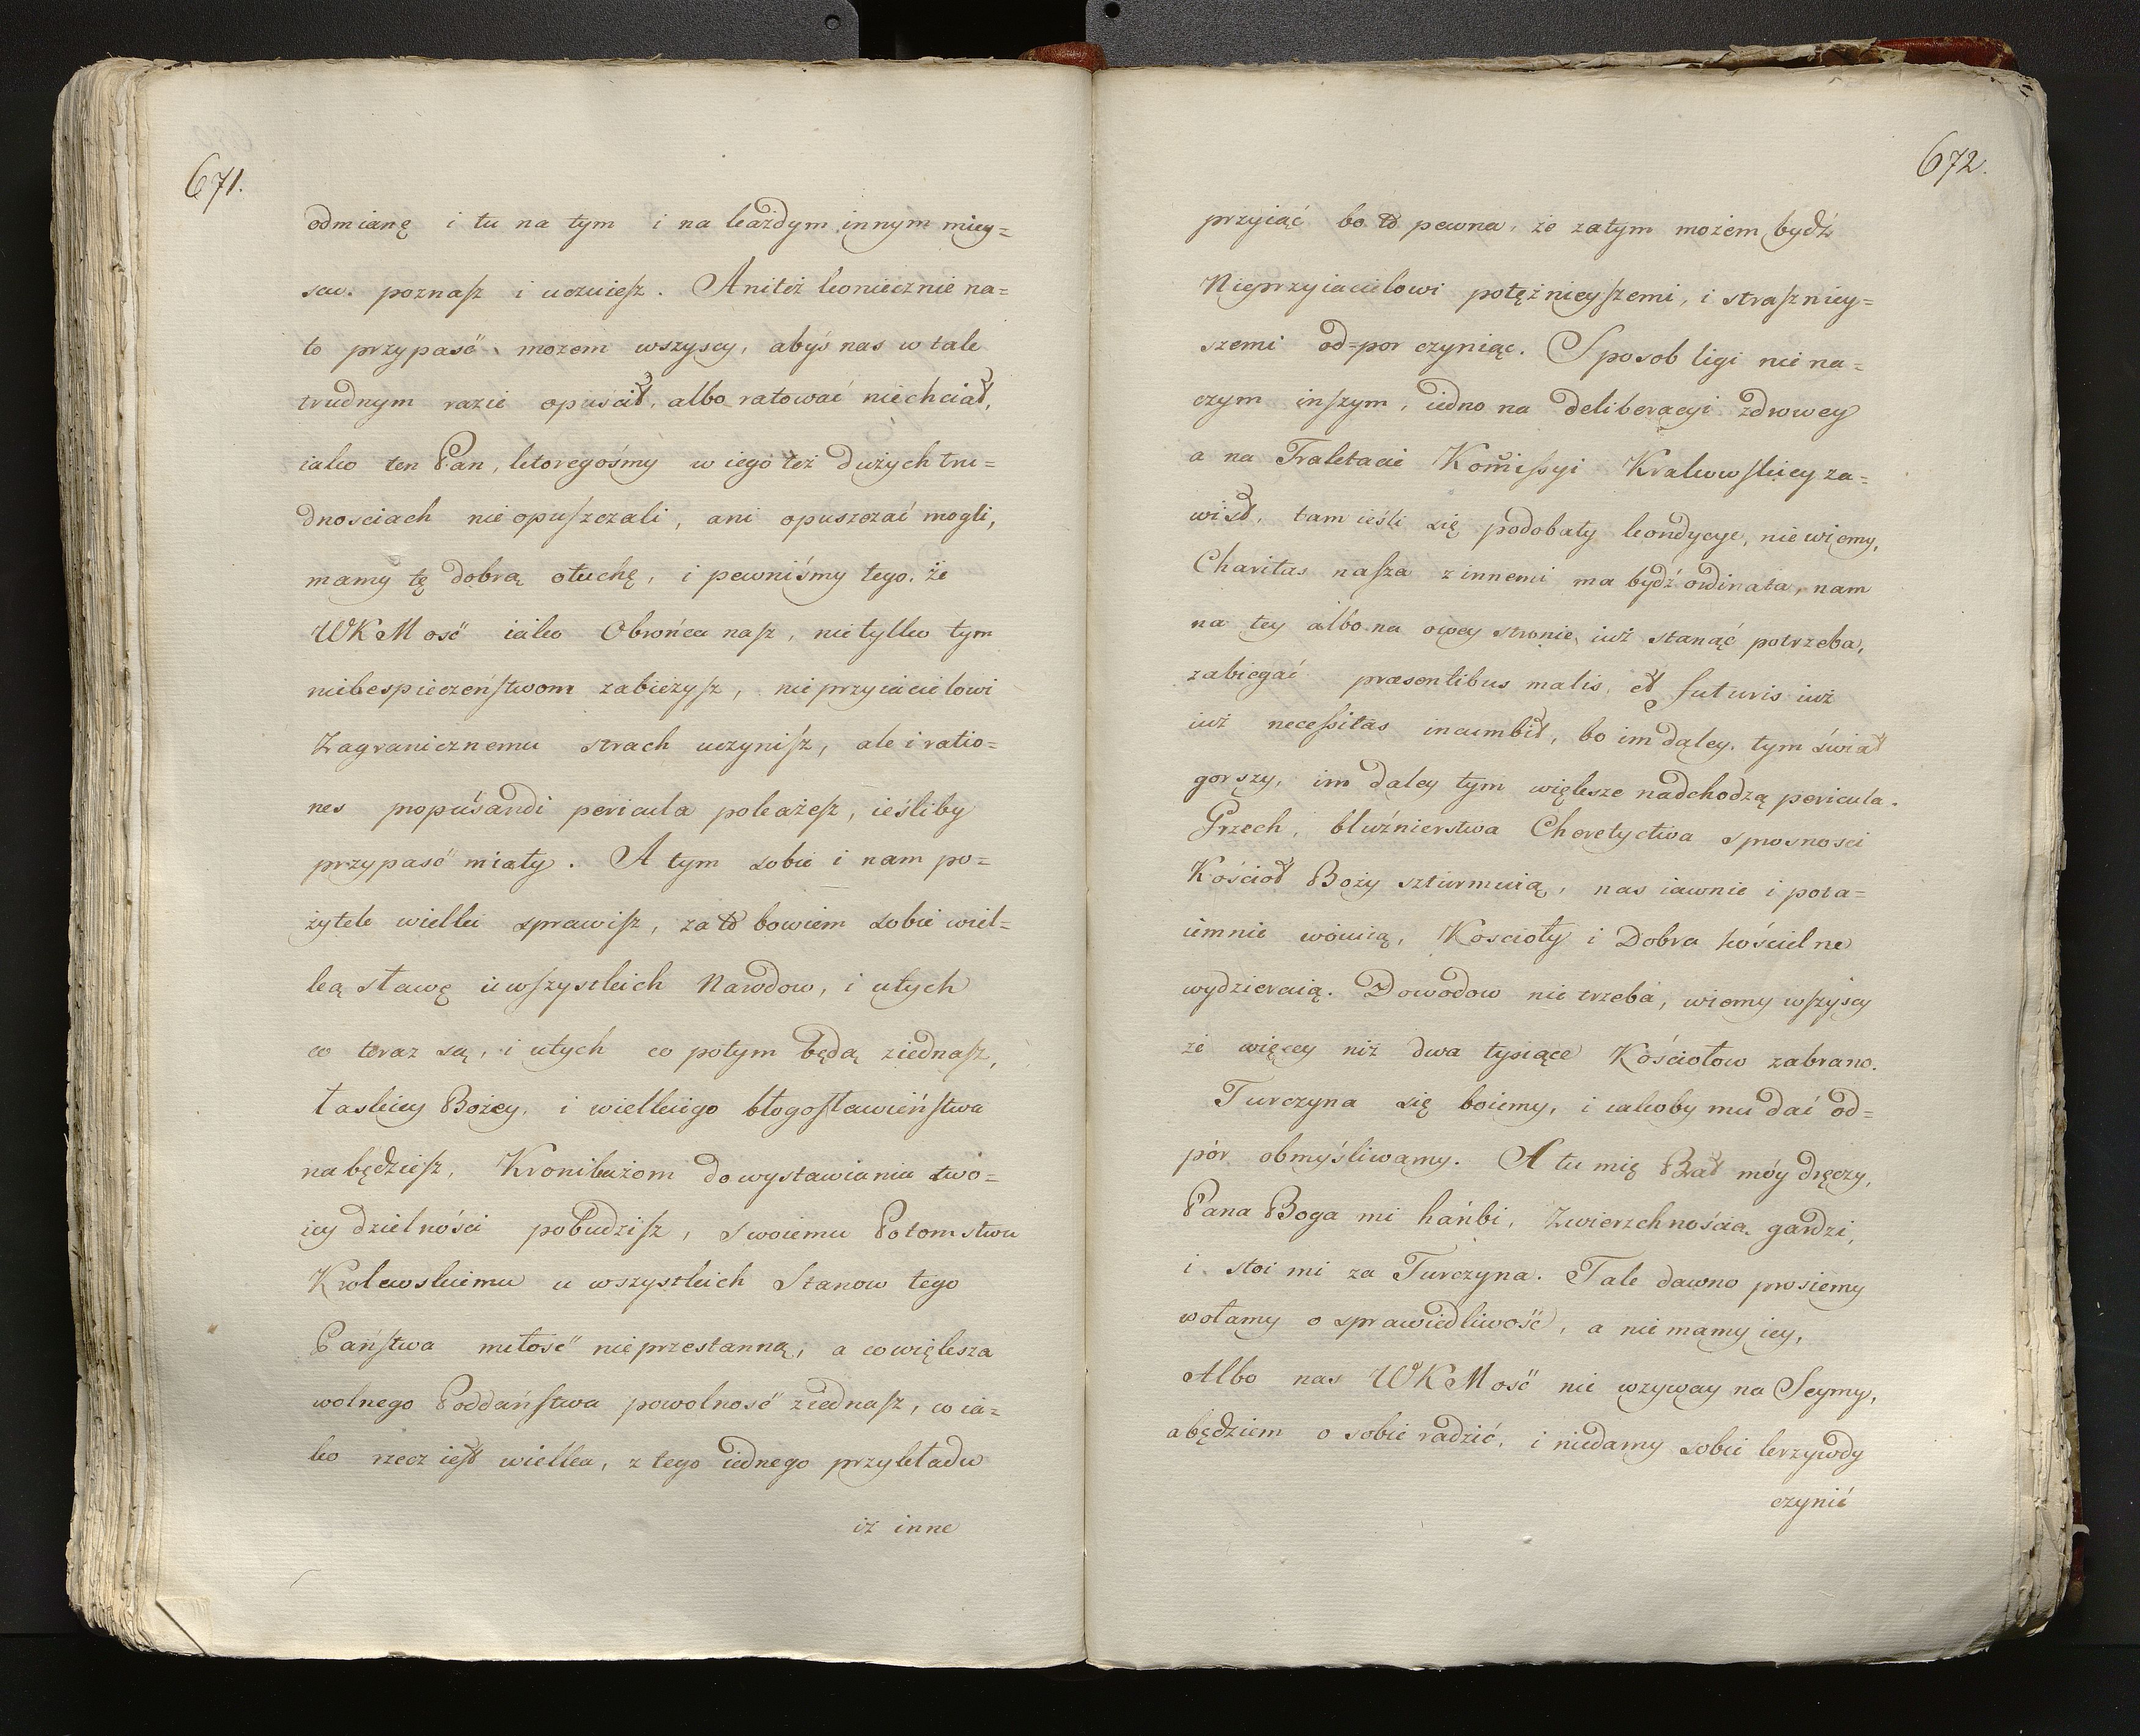 671.
odmianę i tu na tym i na każdym innym miey=
scu. poznasz i uczuiesz. Aniteż koniecznie na=
to przypaść możem wszyscy, abyś nas w tak
trudnym razie opuścił, albo ratować niechciał,
iako ten Pan, ktoregośmy w iego też dużych tru=
dnosciach nie opuszczali, ani opuszczać mogli,
mamy tę dobrą otuchę, i pewniśmy tego, że
WKMość iako Obrońca nasz, nietylko tym
niebespieczeństwom zabieżysz, nieprzyiacielowi
Zagranicznemu strach uczynisz, ale i ratio=
nes propulsandi pericula pokażesz, ieśliby
przypaść miały. A tym sobie i nam po=
żytek wielki sprawisz, za to bowiem sobie wiel=
ką sławę u wszystkich Narodow, i utych
co teraz są, i utych co potym będą ziednasz,
łaskiey Bożey, i wielkiego błogosławieństwa
nabędziesz, Kronikażom do wystawiania two=
iey dzielności pobudzisz, swoiemu Potomstwu
Krolewskiemu u wszystkich Stanow tego
Państwa miłość nieprzestanną, a co większa
wolnego Poddaństwa powolność ziednasz, co ia=
ko rzecz iest wielka, z tego iednego przykładu
iż inne
672.
przyiąć bo to pewna, że zatym możem bydź
Nieprzyiacielowi potężnieyszemi, i straszniey=
szemi od=por czyniąc. Sposob ligi nie na=
czym inszym, iedno na deliberacyi zdrowey
a na Traktacie Kom̃issyi Krakowskiey za=
wisł, tam ieśli się podobały kondycye, nie wiemy,
Charitas nasza z innemi ma bydź ordinata, nam
na tey albo na owey stronie, iuż stanąć potrzeba,
zabiegać præsentibus malis, et futuris iuż
iuż necessitas incumbit, bo im daley, tym świat
gorszy, im daley tym większe nadchodzą pericula.
Grzech, bluźnierstwa Cheretyctwa sprosnosci
Kościoł Boży szturmuią, nas iawnie i pota=
iemnie woiuią, Koscioły i Dobra kościelne
wydzieraią. Dowodow nie trzeba, wiemy wszyscy
że więcey niż dwa tysiące Kościołow zabrano.
Turczyna się boiemy, i iakoby mu dać od=
pór obmyśliwamy. A tu mię Brat móy dręczy,
Pana Boga mi hańbi, Zwierzchnością gardzi,
i stoi mi za Turczyna. Tak dawno prosiemy
wołamy o sprawiedliwość, a nie mamy iey,
Albo nas WKMość nie wzyway na Seymy,
abędziem o sobie radzić, i niedamy sobie krzywdy
czynić